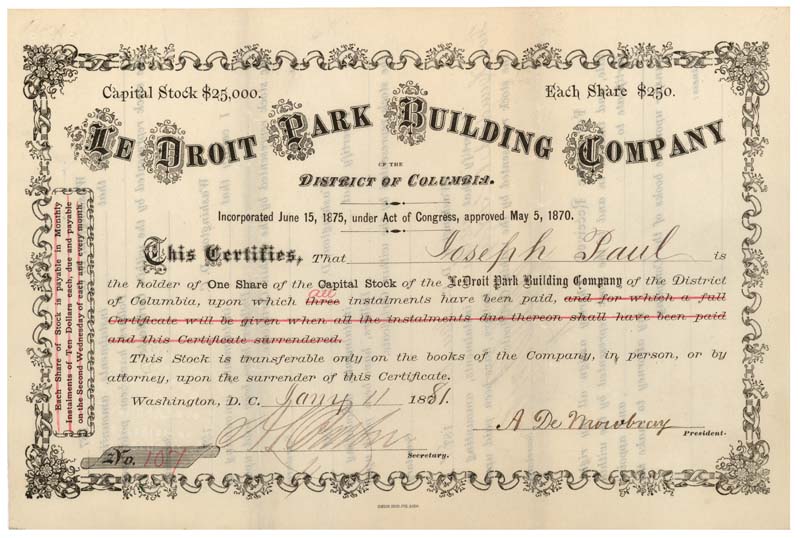 Capital Stock $25,000.
Each Share $250.
LE DROIT PARK BUILDING COMPANY
OF THE
DISTRICT OF COLUMBIA.
Incorporated June 15, 1875, under Act of Congress, approved May 5, 1870.
This Certifies, That Joseph Paul is
the holder of One Share of the Capital Stock of the LeDroit Park Building Company of the District
all
of Columbia, upon which three instalments have been paid, and for which a full
Certificate will be given when all the instalments due thereon shall have been paid
and this Certificate surrendered.
This Stock is transferable only on the books of the Company, in person, or by
attorney, upon the surrender of this Certificate.
Washington, D. C. Jany 11 1881.
A De Mowbray
President.
Secretary.
No. 107
Each Share of Stock is payable in Monthly
Instalments of Ten Dollars each, due and payable
on the Second Wednesday of each and every month.